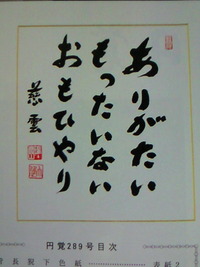 ありがたい
もったいない
おもひやり
慈雲
円覚289号目次
管長猊下色紙 表紙2